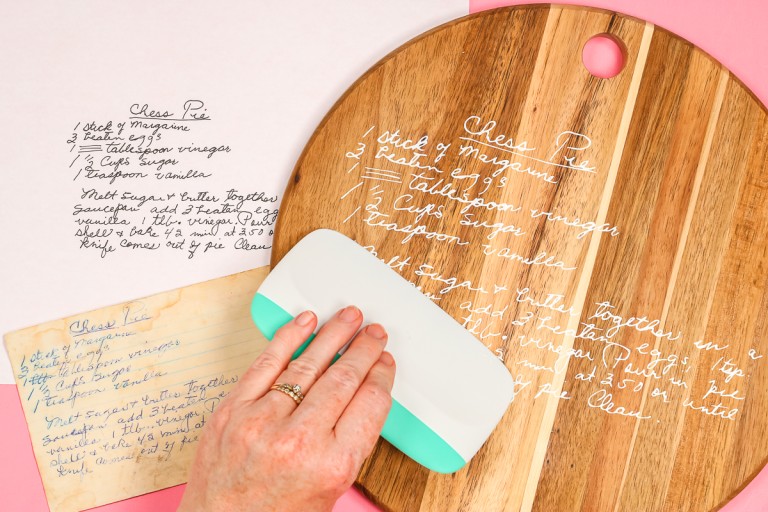 Chess Pie
1 stick of Margarine
3 beaten eggs
1 tablespoon vinegar
1 1/2 Cups Sugar
1 teaspoon vanilla
Melt Sugar & butter together
saucepan add 3 beaten egg
vanilla 1 tbl. vinegar. Pour
shell & bake 42 min at 350 or
knife comes out of pie Clean
Chess Pie
1 stick of Margarine
3 beaten eggs
1 tablespoon vinegar
1 1/2 Cups Sugar
1 teaspoon vanilla
Melt Sugar & butter together in a
add 3 beaten eggs, 1 tsp
tbl. vinegar. Pour in pie
min at 350 or until
of pie Clean.
Chess Pie
1 stick of Margarine
3 beaten eggs
1 tablespoon vinegar
1 1/2 Cups Sugar
1 teaspoon vanilla
Melt Sugar & butter together
saucepan add 3 beaten
vanilla 1 tbl. vinegar
shell & bake 42 min at
knife comes out of pie